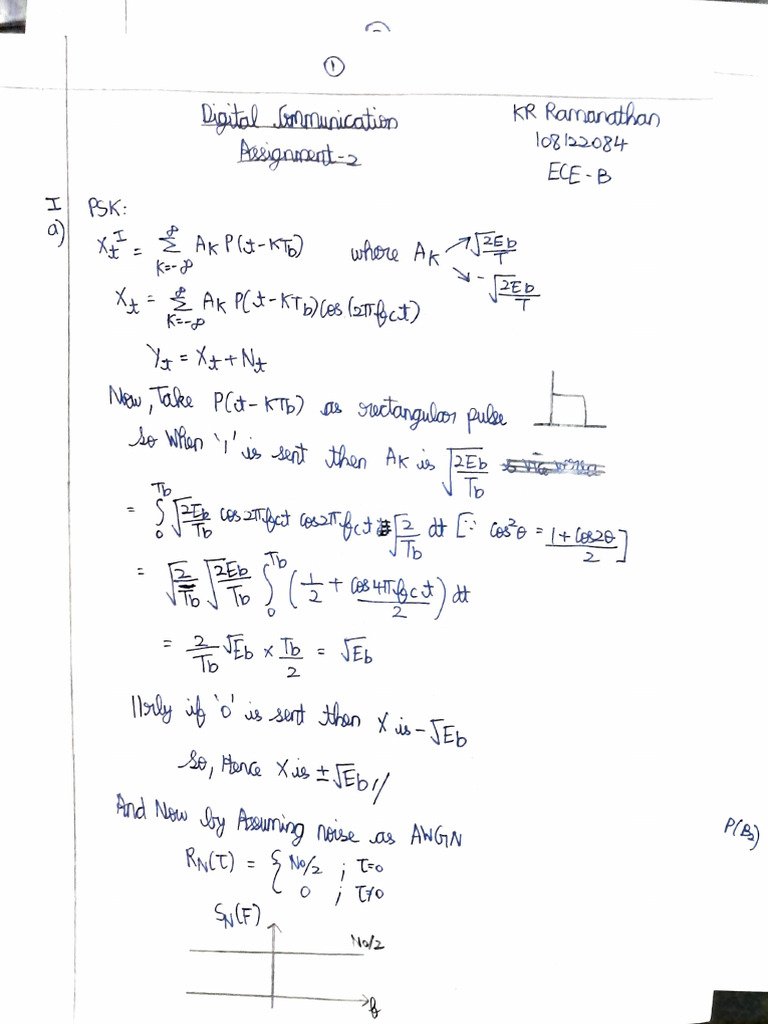 ①
Digital Communication
Assignment-2
KR Ramanathan
108122084
ECE-B
I PSK:
a) X_t^I = ∑_{K=-∞}^{∞} A_K P(t-KT_b) where A_K ↗ √(2E_b/T) ↘ -√(2E_b/T)
X_t = ∑_{K=-∞}^{∞} A_K P(t-KT_b) cos(2πf_ct)
Y_t = X_t + N_t
Now, Take P(t-KT_b) as rectangular pulse
So When '1' is sent then A_K is √(2E_b/T_b)
= ∫_0^{T_b} √(2E_b/T_b) cos2πf_ct cos2πf_ct √(2/T_b) dt [∵ cos²θ = (1+cos2θ)/2]
= √(2/T_b) √(2E_b/T_b) ∫_0^{T_b} (1/2 + cos4πf_ct/2) dt
= 2/T_b √E_b × T_b/2 = √E_b
llrly if '0' is sent then X is -√E_b
So, Hence X is ±√E_b //
And Now by Assuming noise as AWGN
P(B_2)
R_N(τ) = { N_0/2 ; τ=0
0 ; τ≠0
S_N(F)
N_0/2
f